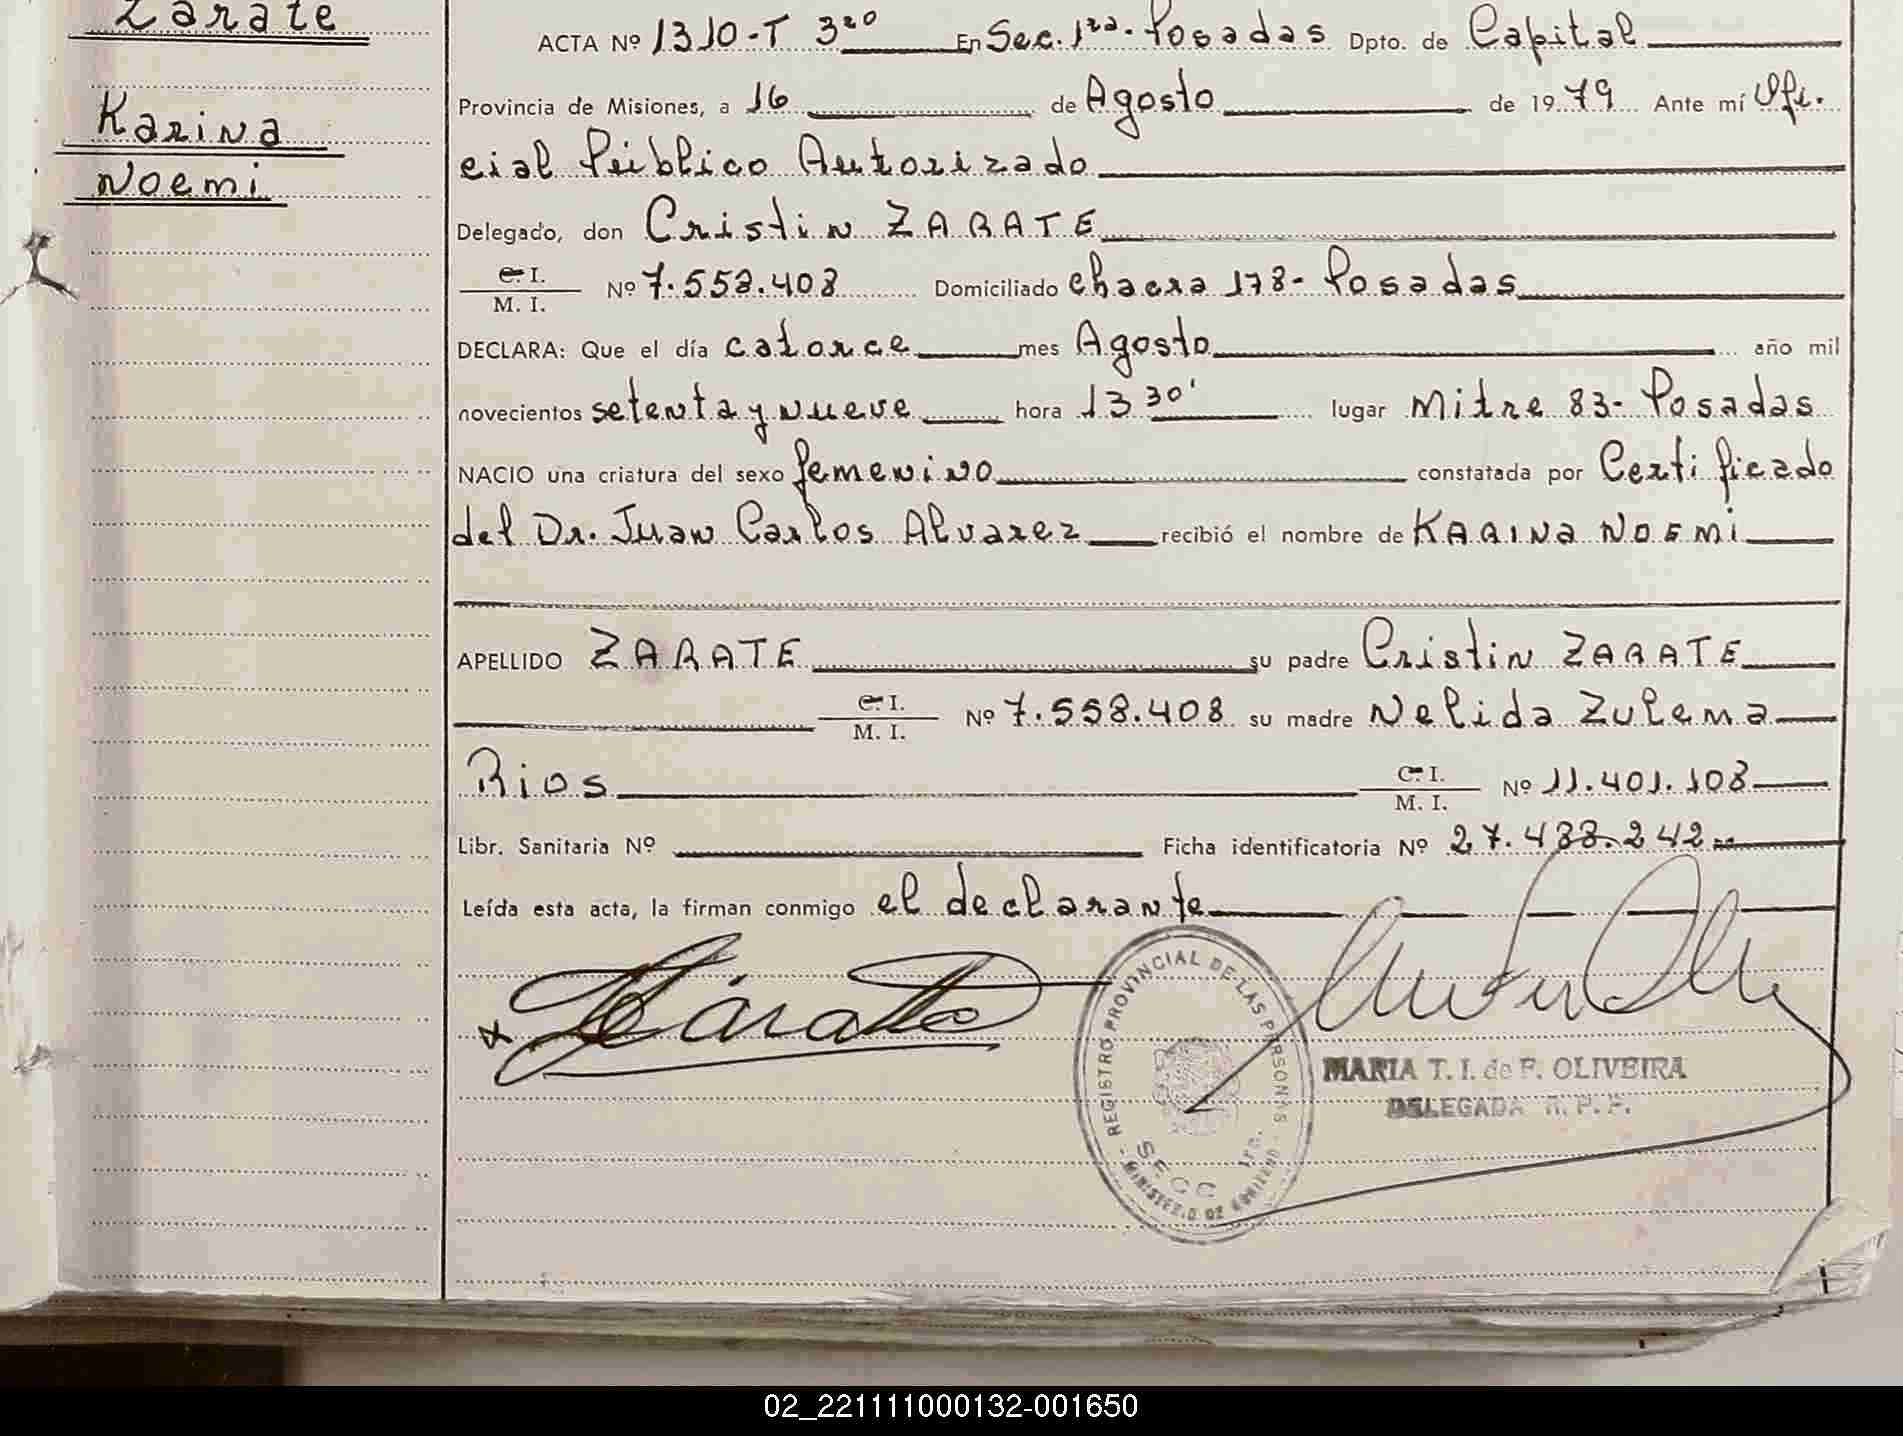 Zarate
Karina
Noemi
ACTA Nº 1310-T 3ro En Sec. 1ra. Posadas Dpto. de Capital
Provincia de Misiones, a 16 de Agosto de 1979 Ante mí Ofi.
cial Público Autorizado
Delegado, don Cristin ZARATE
C. I.
M. I. Nº 7.558.408 Domiciliado chacra 178- Posadas
DECLARA: Que el día catorce mes Agosto año mil
novecientos setenta y nueve hora 13 30' lugar Mitre 83- Posadas
NACIO una criatura del sexo femenino constatada por Certificado
del Dr. Juan Carlos Alvarez recibió el nombre de KARINA NOEMI
APELLIDO ZARATE su padre Cristin ZARATE
C. I.
M. I. Nº 7.558.408 su madre Nelida Zulema
Rios C. I.
M. I. Nº 11.401.108
Libr. Sanitaria Nº Ficha identificatoria Nº 27.488.242
Leída esta acta, la firman conmigo el declarante
x Zárate
REGISTRO PROVINCIAL DE LAS PERSONAS
SECC 1ra.
MINISTERIO DE GOBIERNO
MARIA T. I. de F. OLIVEIRA
DELEGADA R. P. P.
02_221111000132-001650